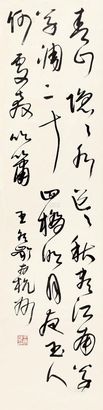 青山隱隱水迢迢秋盡江南草
未凋二十四橋明月夜玉人
何處教吹簫 王冬齡
杭州